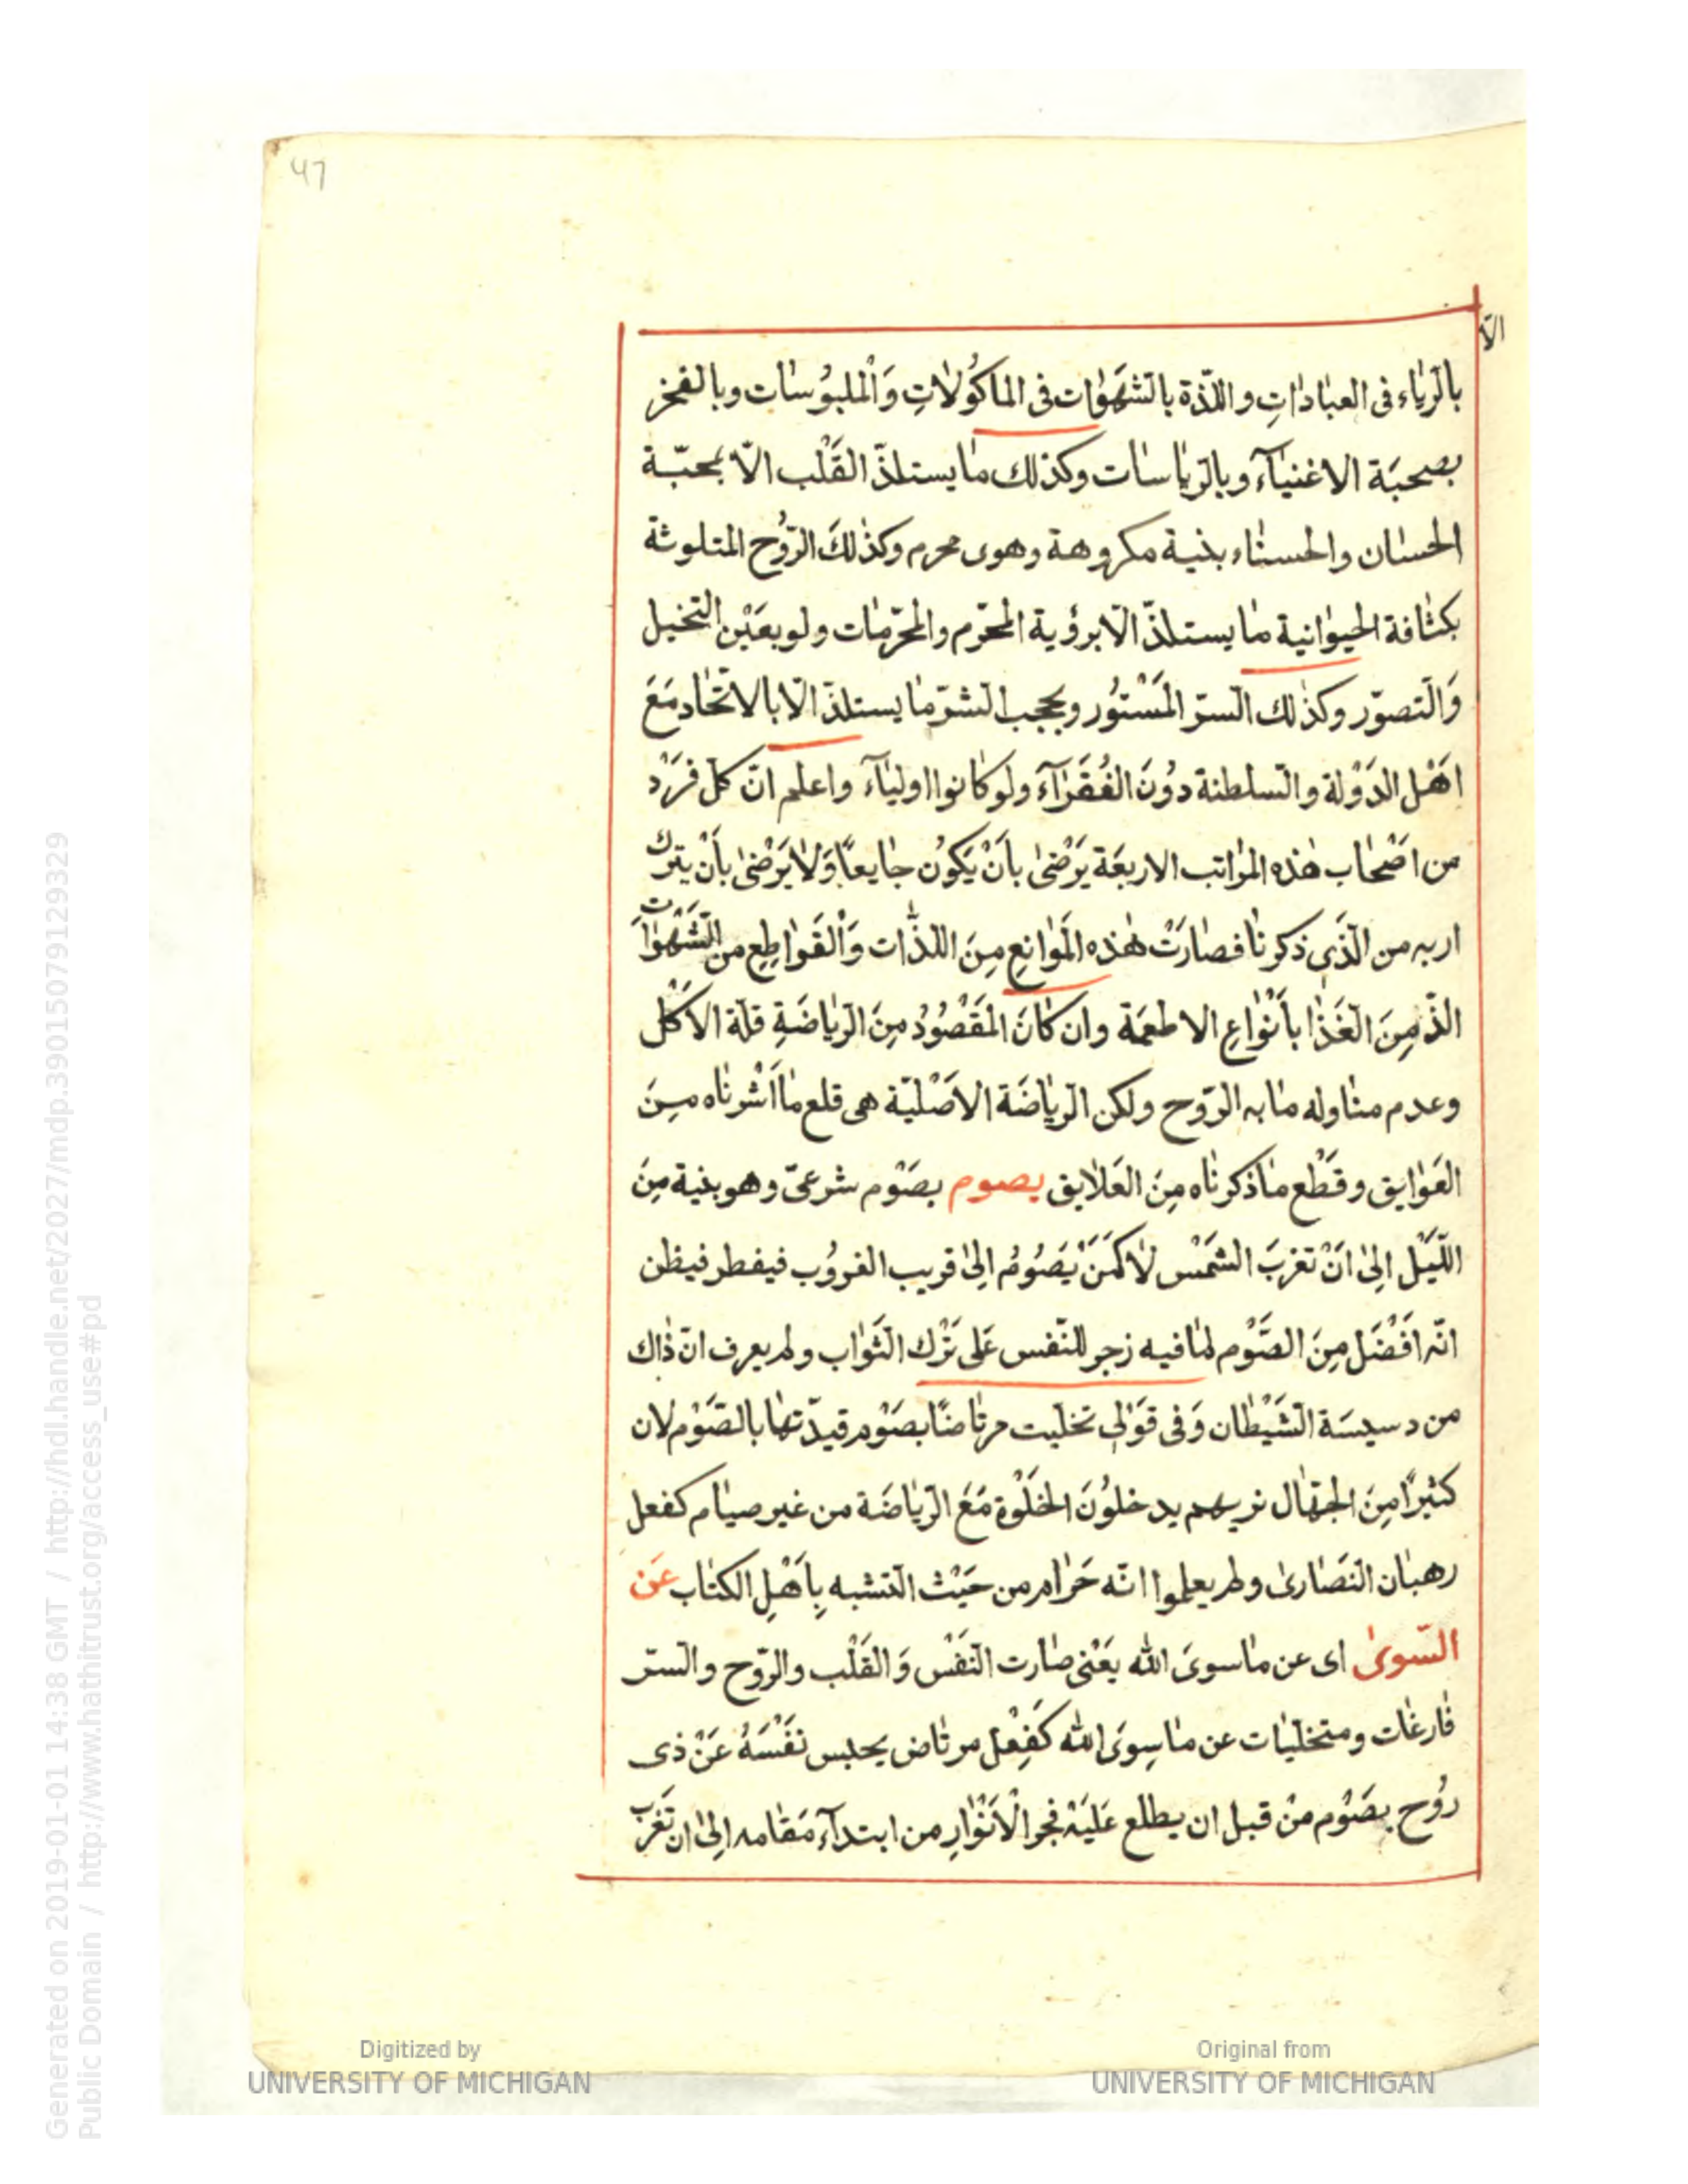 47
الّا
بالرّياء فى العبادات واللّذة بالشَّهَوات فى الماكُولاتِ وَالْملبُوسات وبالفخر
بصحبَة الاغنيَآء وبالرّياسات وكذلك مَا يستلذّ القَلْب الّا بمحبّة
الحسان والحسنَاء بنية مكروهة وهوى محرم وكذلكَ الرّوُح المتلوثة
بكثافة الحيوانية مَا يستلذّ الّا برؤية المحَرّم والمحرّمَات ولو بعَيْن التخيل
وَالتصوّر وكذلك السرّ المَسْتُور وبحجب الشرّ مَا يستلذّ الّا بالاتّحاد مَعَ
اهْل الدَوْلة والسلطنة دوُنَ الفُقَرَآء ولو كانوا اوليَآء واعلم انّ كلّ فَرَدْ
من اصْحَاب هٰذه المرَاتب الاربعَة يَرْضىٰ بأنْ يَكوُن جايعًا وَلا يَرْضىٰ بأنْ يترك
اربه من الّذى ذكرنا فصارَتْ هٰذه المَوانِع مِنَ اللذّات وَالْقَواطِع من الشّهَوَاتِ
الذّ مِنَ الغَذَا بأَنوْاعِ الاطعمَة وان كَانَ المَقْصُودُ مِنَ الرّياضَةِ قلّة الاَكْل
وعدم مناوله مَا به الرّوح ولكن الرّياضَة الاَصْليّة هى قلع مَا اَشْرنَاه مِنَ
العَوايق وقَطْع مَا ذكرنَاه مِنَ العَلايق بصوم بصَوْم شرعىّ وهو بنية مِنَ
اللّيَل اِلىٰ انَْ تغربَ الشَمْس لاكمَنَ يَصُومُ اِلىٰ قريب الغروُب فيفطر فيظن
انّه افَضَل مِنَ الصَّوْم لمَا فيه زجر للنّفس عَلى تَرْك الثَواب ولم يعرف انّ ذاك
من دسيسَة الشَيْطان وَفى قوَلْى تخليت مرتاضًا بصَوْم قيدّتهَا بالصَوْم لان
كثيرًا مِنَ الجهّال نريهم يدخلوُنَ الخلْوة مَعَ الرّياضَة من غير صيَام كفعل
رهبَان النَصَارىٰ ولم يعلموا انّه حَرام من حَيْث التشبه بِاَهْل الكتاب عَن
السّوىٰ اى عن مَاسوىَ الله يَعْنى صارت النَفْس وَالقَلْب والرّوح والسرّ
فارغات ومتخليَات عن مَاسِوىَ الله كَفِعْل مرتاض يحبس نَفْسَهُ عَنْ ذى
رُوح بصَوْم منْ قبل ان يطلع عَليَه فجر الْانَوْارِ من ابتدآء مَقامه اِلىٰ ان تَغرَبَ
Digitized by
UNIVERSITY OF MICHIGAN
Original from
UNIVERSITY OF MICHIGAN
Generated on 2019-01-01 14:38 GMT / http://hdl.handle.net/2027/mdp.39015079129329
Public Domain / http://www.hathitrust.org/access_use#pd